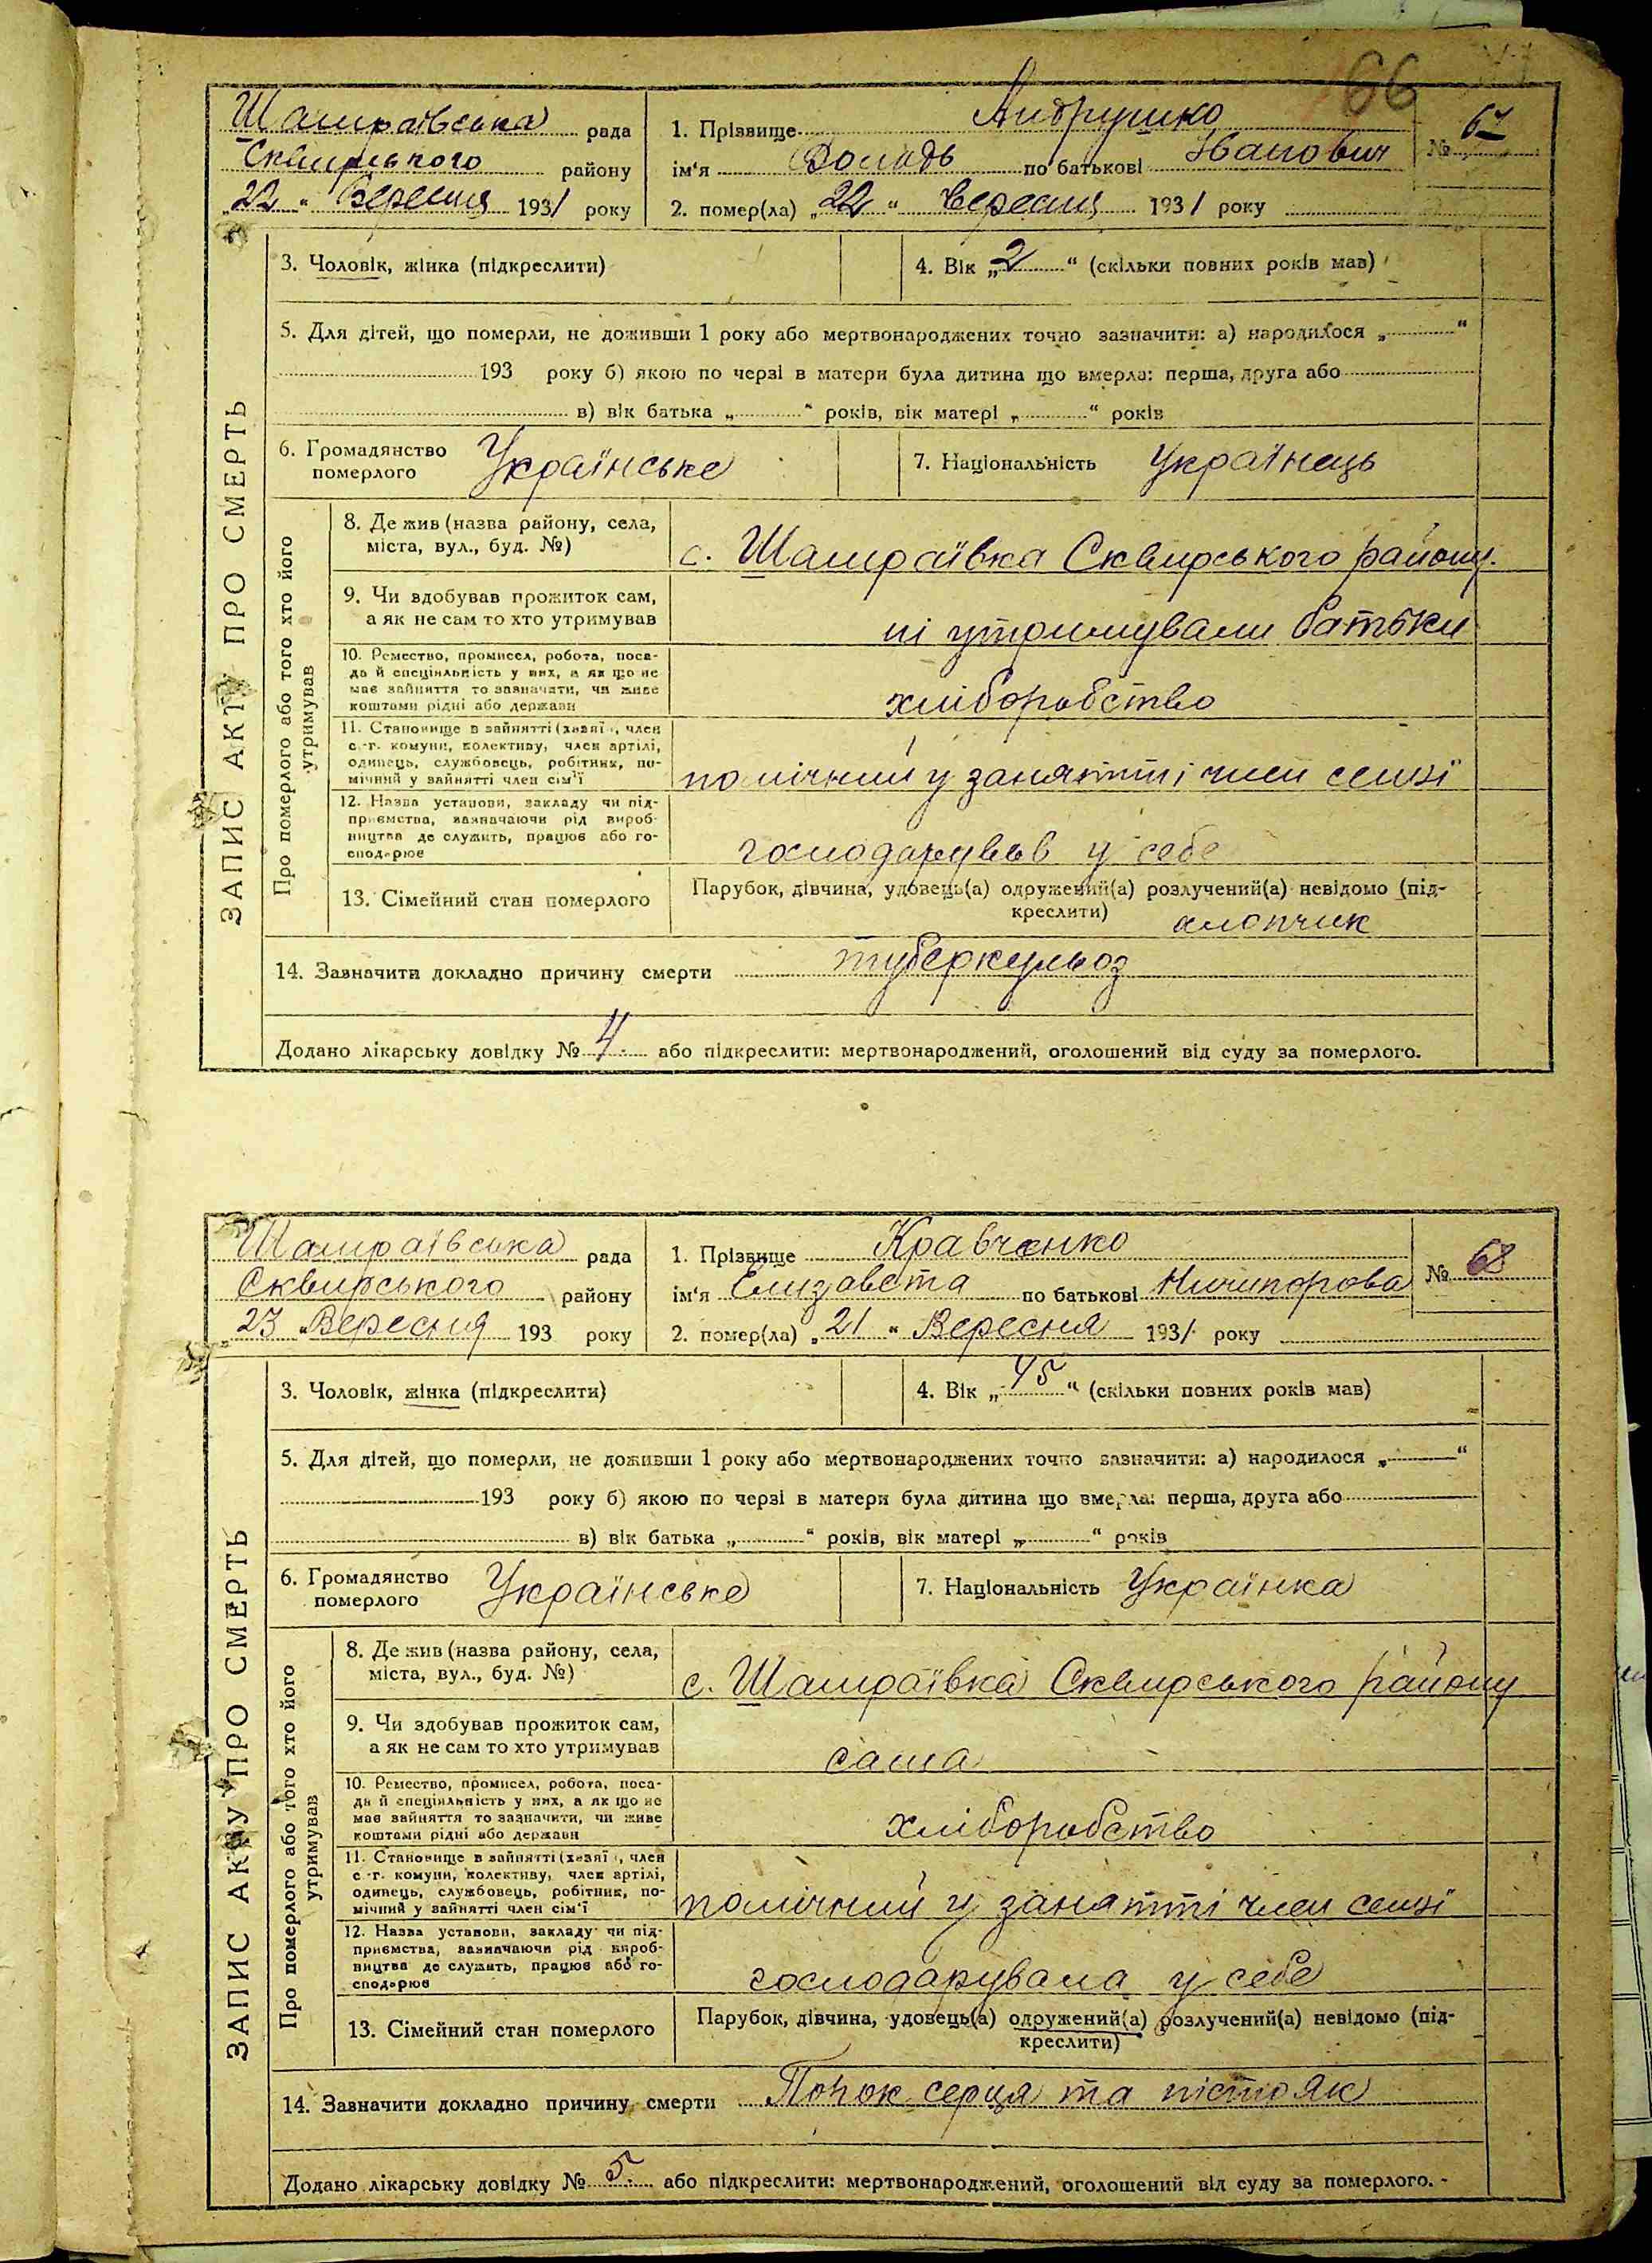 66
Шамраївська рада
Сквирського району
„22“ Вересня 1931 року
1. Прізвище Андрушко
ім‘я Володь по батькові Іванович
№ 67
2. помер(ла) „22“ Вересня 1931 року
ЗАПИС АКТУ ПРО СМЕРТЬ
3. Чоловік, жінка (підкреслити)
4. Вік „2“ (скільки повних років мав)
5. Для дітей, що померли, не доживши 1 року або мертвонароджених точно зазначити: а) народилося „ “
193 року б) якою по черзі в матери була дитина що вмерла: перша, друга або
в) вік батька „ “ років, вік матері „ “ років
6. Громадянство померлого Українське
7. Національність Українець
Про померлого або того хто його утримував
8. Де жив (назва району, села,
міста, вул., буд. №)
с. Шамраївка Сквирського району.
9. Чи вдобував прожиток сам,
а як не сам то хто утримував
ні утримували батьки
10. Ремество, промисел, робота, поса-
да й спеціяльність у них, а як що не
має зайняття то зазначити, чи живе
коштами рідні або держави
хліборобство
11. Становище в зайнятті (хазяї , член
с.-г. комуни, колективу, член артілі,
одинець, службовець, робітник, по-
мічний у зайнятті член сім‘ї
помічний у занятті член семзї
12. Назва установи, закладу чи під-
приємства, зазначаючи рід вироб-
ництва де служить, працює або го-
сподарює
господарував у себе
13. Сімейний стан померлого
Парубок, дівчина, удовець(а) одружений(а) розлучений(а) невідомо (під-
креслити) хлопчик
14. Зазначити докладно причину смерти туберкульоз
Додано лікарську довідку № 4 або підкреслити: мертвонароджений, оголошений від суду за померлого.
Шамраївська рада
Сквирського району
„23“ Вересня 193 року
1. Прізвище Кравченко
ім‘я Елизавета по батькові Ничипорова
№ 68
2. помер(ла) „21“ Вересня 1931 року
ЗАПИС АКТУ ПРО СМЕРТЬ
3. Чоловік, жінка (підкреслити)
4. Вік „45“ (скільки повних років мав)
5. Для дітей, що померли, не доживши 1 року або мертвонароджених точно зазначити: а) народилося „ “
193 року б) якою по черзі в матери була дитина що вмерла: перша, друга або
в) вік батька „ “ років, вік матері „ “ років
6. Громадянство померлого Українське
7. Національність Українка
Про померлого або того хто його утримував
8. Де жив (назва району, села,
міста, вул., буд. №)
с. Шамраївка Сквирського району
9. Чи здобував прожиток сам,
а як не сам то хто утримував
сама
10. Ремество, промисел, робота, поса-
да й спеціяльність у них, а як що не
має зайняття то зазначити, чи живе
коштами рідні або держави
хліборобство
11. Становище в зайнятті (хазяї , член
с.-г. комуни, колективу, член артілі,
одинець, службовець, робітник, по-
мічний у зайнятті член сім‘ї
помічний у занятті член семзї
12. Назва установи, закладу чи під-
приємства, зазначаючи рід вироб-
ництва де служить, працює або го-
сподарює
господарувала у себе
13. Сімейний стан померлого
Парубок, дівчина, удовець(а) одружений(а) розлучений(а) невідомо (під-
креслити)
14. Зазначити докладно причину смерти Порок серця та
Додано лікарську довідку № 5 або підкреслити: мертвонароджений, оголошений від суду за померлого.